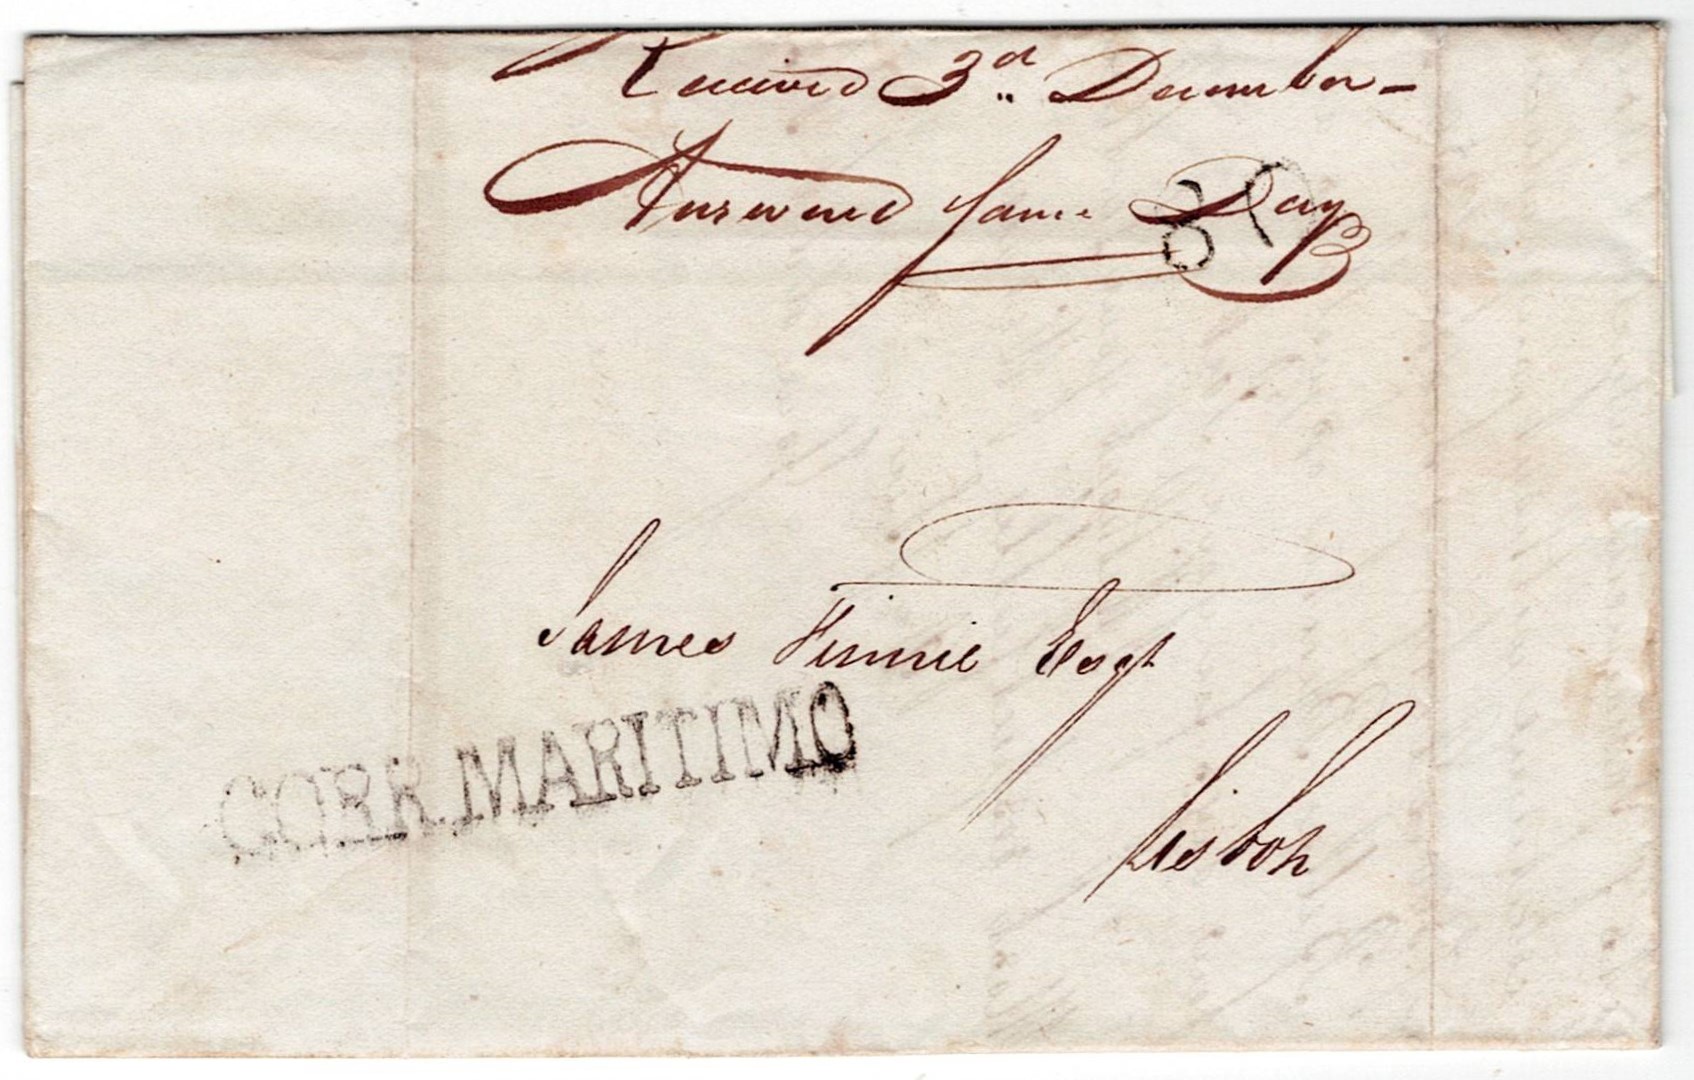 Received 3d December -
Answered same Day
80
James Finnie Esqr
CORR.MARITIMO
Lisbon